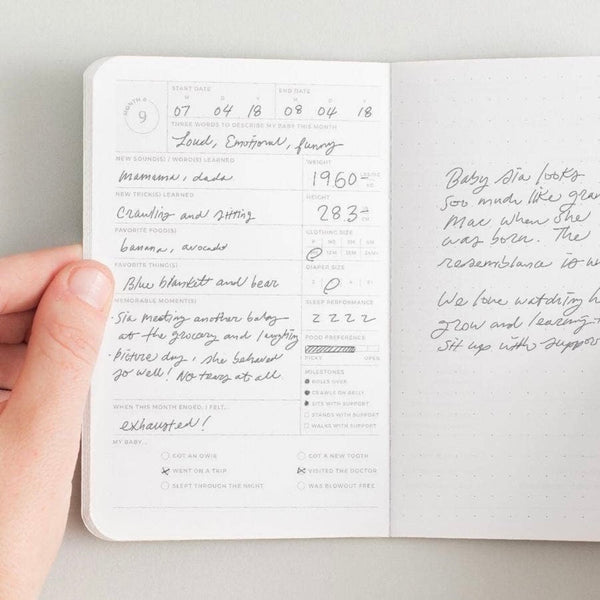 MONTH #
9
START DATE END DATE
M D Y M D Y
07 04 18 08 04 18
THREE WORDS TO DESCRIBE MY BABY THIS MONTH
Loud, Emotional, funny
NEW SOUND(S) / WORD(S) LEARNED
mamama, dada
NEW TRICK(S) LEARNED
Crawling and sitting
FAVORITE FOOD(S)
banana, avocado
FAVORITE THING(S)
Blue blankett and bear
MEMORABLE MOMENT(S)
· Sia meeting another baby
at the grocery and laughing
· Picture day, she behaved
so well! No tears at all
WHEN THIS MONTH ENDED, I FELT...
exhausted!
WEIGHT
HEIGHT
CLOTHING SIZE
DIAPER SIZE
SLEEP PERFORMANCE
Z Z Z Z
FOOD PREFERENCE
PICKY OPEN
MILESTONES
ROLLS OVER
CRAWLS ON BELLY
SITS WITH SUPPORT
STANDS WITH SUPPORT
WALKS WITH SUPPORT
MY BABY...
GOT AN OWIE GOT A NEW TOOTH
WENT ON A TRIP VISITED THE DOCTOR
SLEPT THROUGH THE NIGHT WAS BLOWOUT FREE
Baby Sia looks
soo much like
Mac when she
was born. The
resemblance is
We love watching
grow and learning
sit ups with